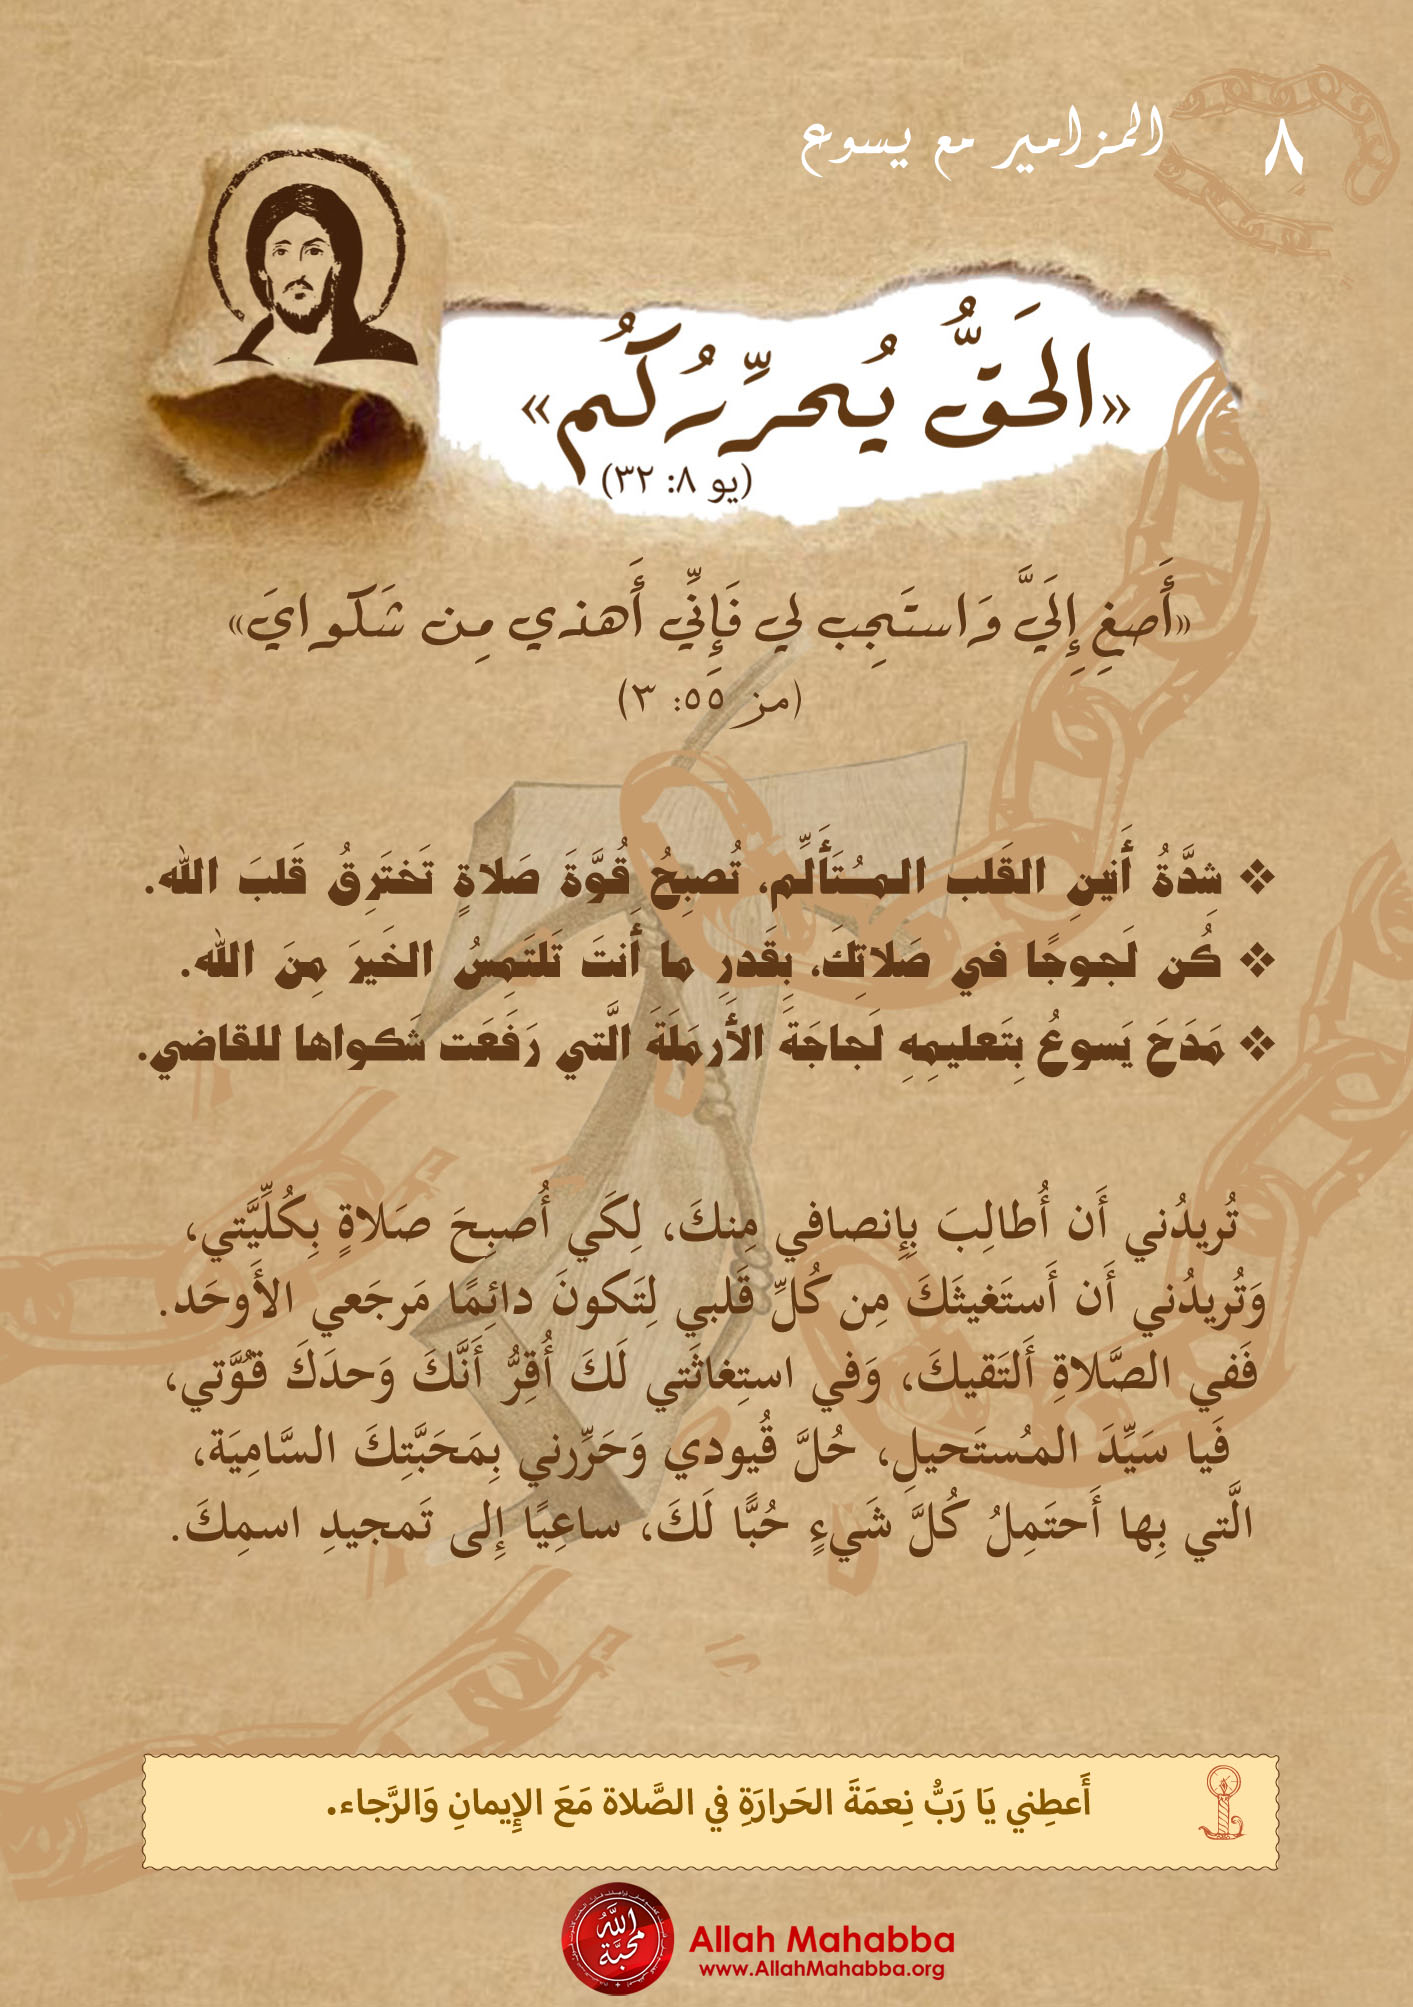 ٨
المزامير مع يسوع
«الحَقُّ يُحرِّرُكُم»
(يو ٨: ٣٢)
«أَصغِ إِلَيَّ وَاستَجِب لي فَإِنِّي أَهذي مِن شَكوايَ»
(مز ٥٥: ٣)
❖ شِدَّةُ أَنينِ القَلب المُتَأَلِّم، تُصبِحُ قُوَّةَ صَلاةٍ تَختَرِقُ قَلبَ الله.
❖ كُن لَجوجًا في صَلاتِكَ، بِقَدرِ ما أَنتَ تَلتَمِسُ الخَيرَ مِنَ الله.
❖ مَدَحَ يَسوعُ بِتَعليمِهِ لَجاجَةَ الأَرمَلَةَ الَّتي رَفَعَت شَكواها للقاضي.
تُريدُني أَن أُطالِبَ بِإِنصافي مِنكَ، لِكَي أُصبِحَ صَلاةٍ بِكُلِّيَّتي،
وَتُريدُني أَن أَستَغيثَكَ مِن كُلِّ قَلبي لِتَكونَ دائِمًا مَرجَعي الأَوحَد.
فَفي الصَّلاةِ أَلتَقيكَ، وَفي استِغاثَتي لَكَ أُقِرُّ أَنَّكَ وَحدَكَ قوَّتي،
فَيا سَيِّدَ المُستَحيلِ، حُلَّ قُيودي وَحَرِّرني بِمَحَبَّتِكَ السَّامِيَة،
الَّتي بِها أَحتَمِلُ كُلَّ شَيءٍ حُبًّا لَكَ، ساعِيًا إِلى تَمجيدِ اسمِكَ.
أَعطِني يَا رَبُّ نِعمَةَ الحَرارَةِ في الصَّلاة مَعَ الإِيمانِ وَالرَّجاء.
الله محبّة
Allah Mahabba
www.AllahMahabba.org